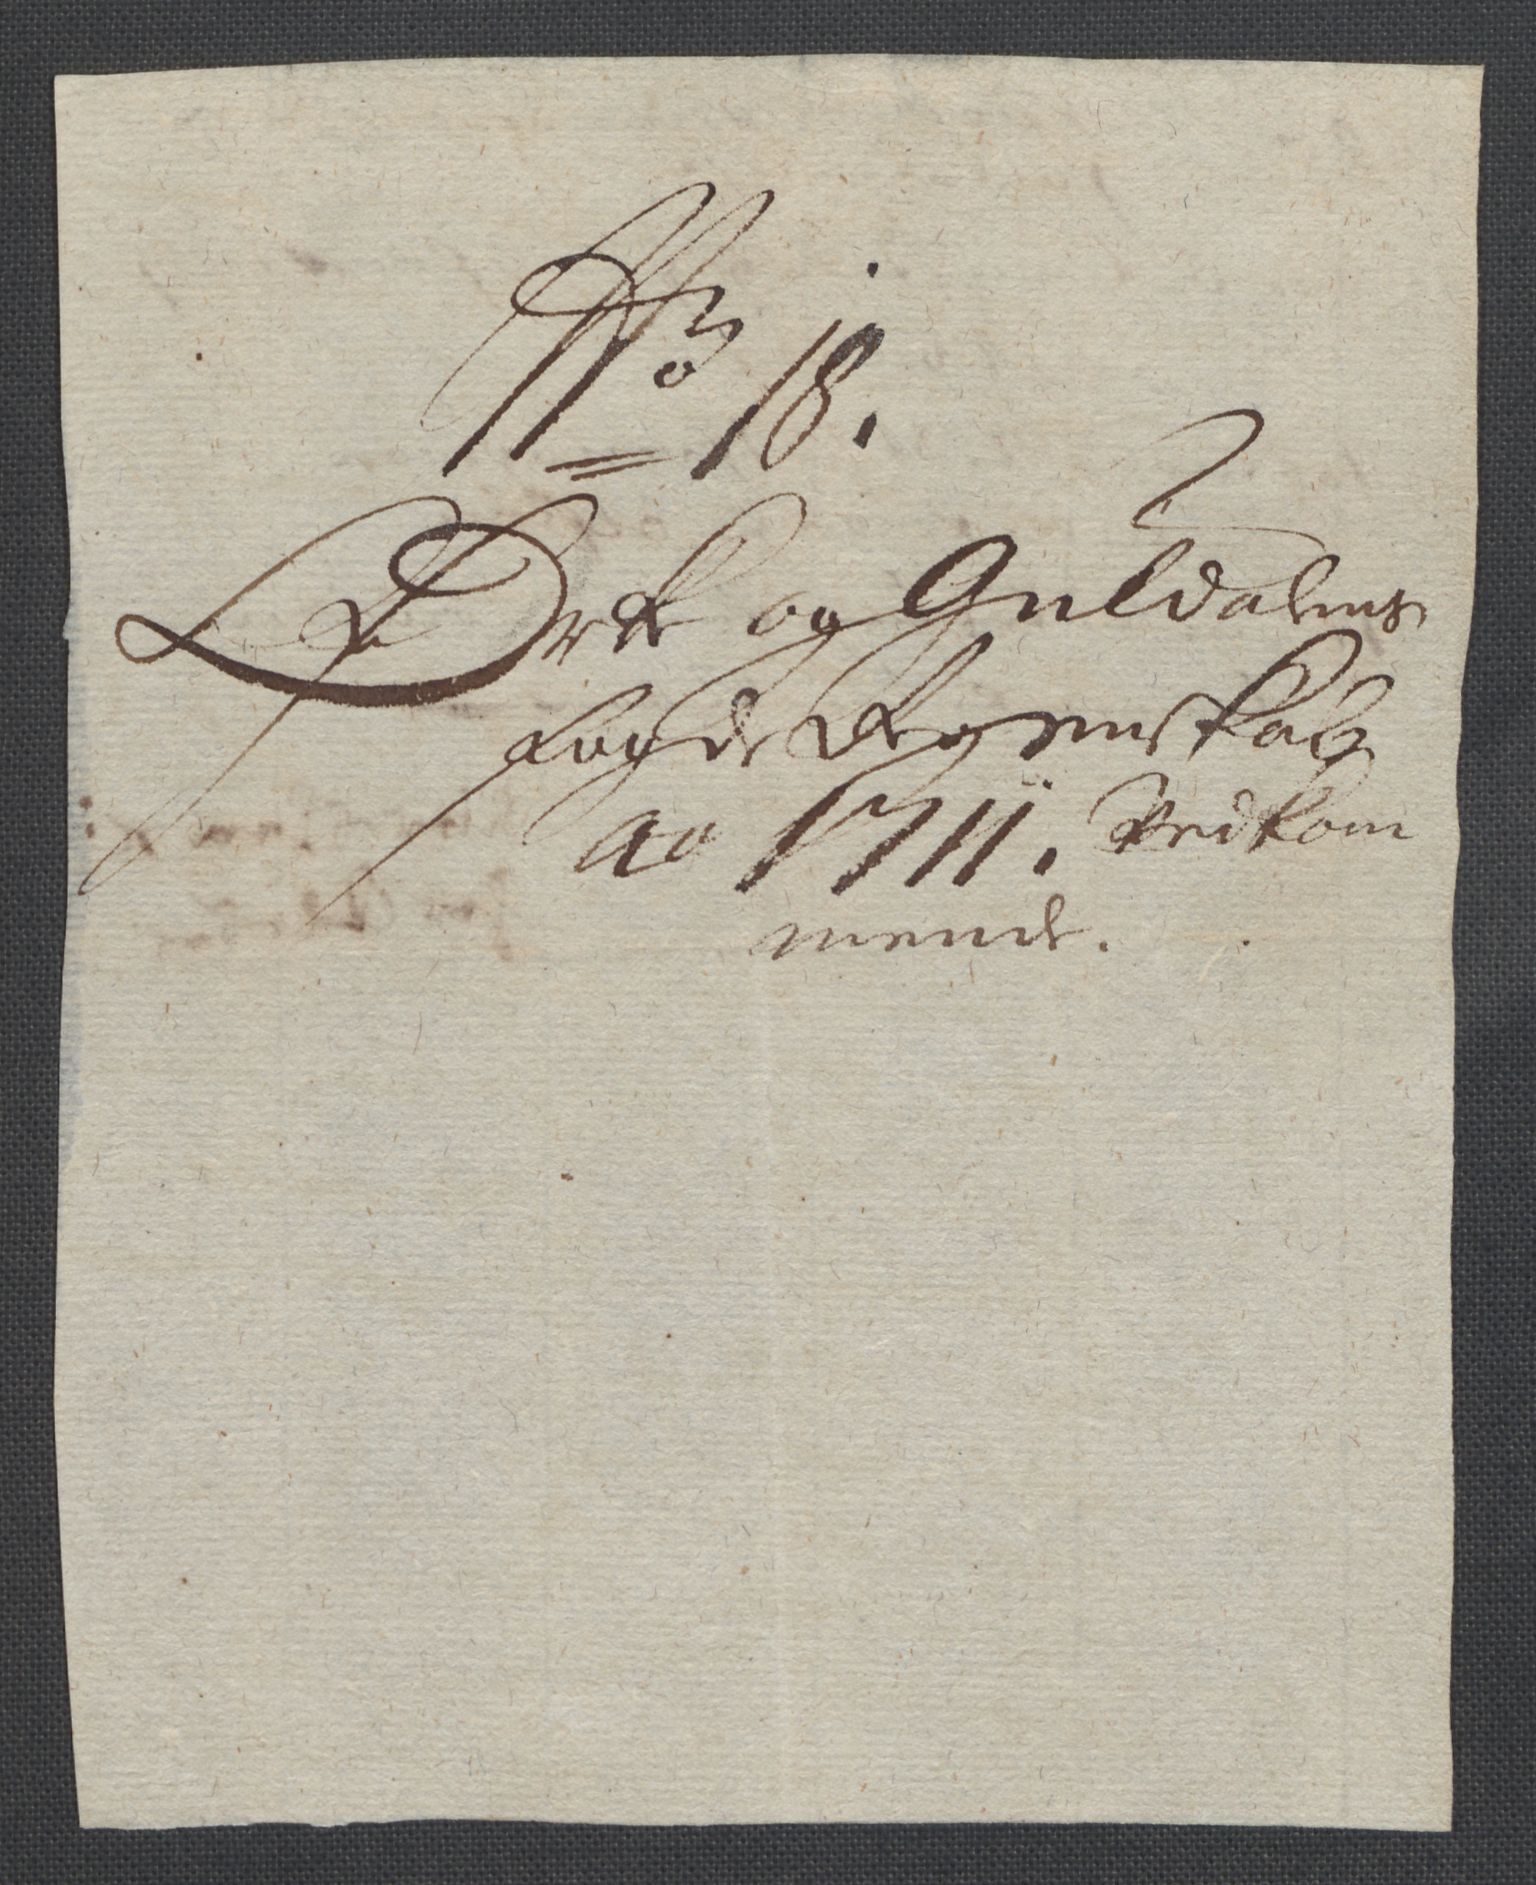 No 18.
Ørke og Guldalens
fogde Regenskab
ao 1711. Vedkom
mende.